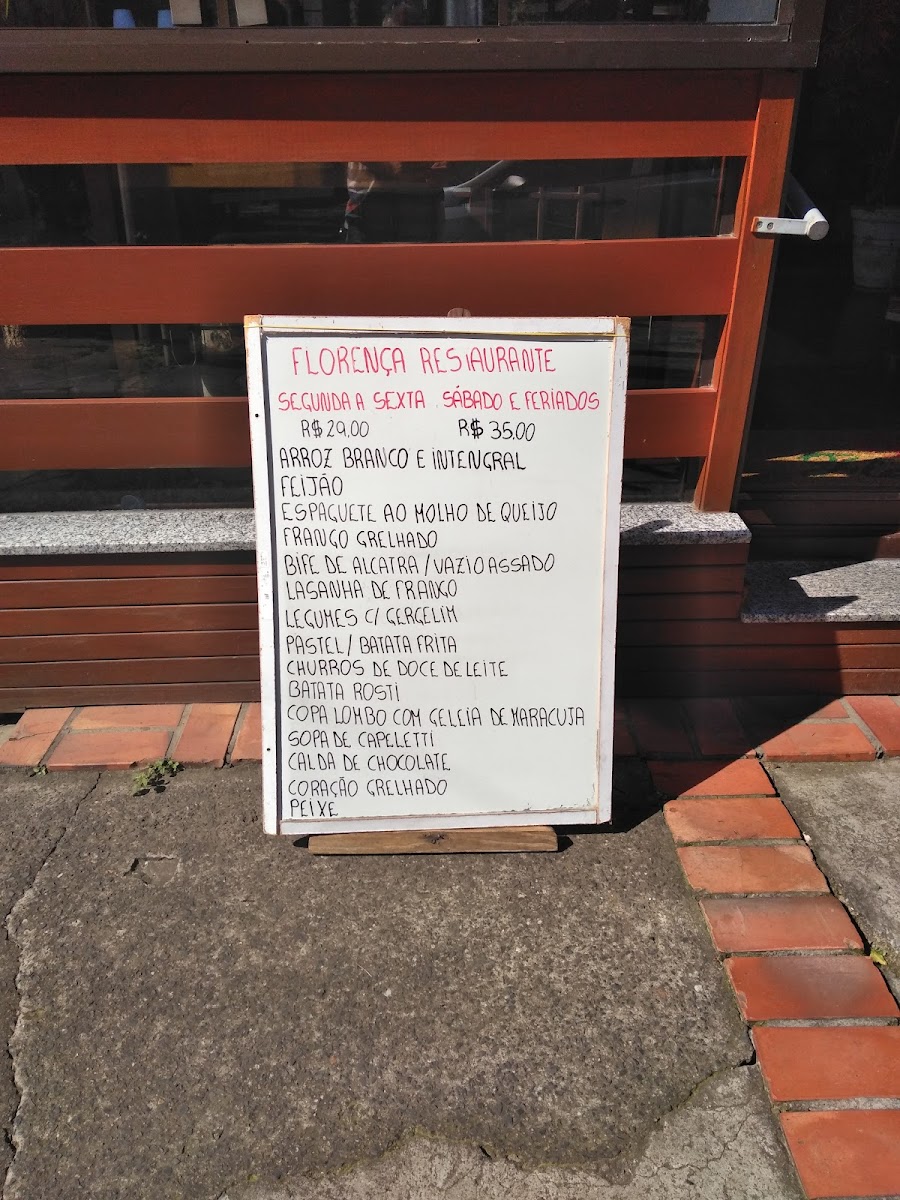 FLORENÇA RESTAURANTE
SEGUNDA A SEXTA . SÁBADO E FERIADOS
R$ 29,00 R$ 35.00
ARROZ BRANCO E INTENGRAL
FEIJÃO
ESPAGUETE AO MOLHO DE QUEIJO
FRANGO GRELHADO
BIFE DE ALCATRA / VAZIO ASSADO
LASANHA DE FRANGO
LEGUMES C/ GERGELIM
PASTEL / BATATA FRITA
CHURROS DE DOCE DE LEITE
BATATA ROSTI
COPA LOMBO COM GELEIA DE MARACUJA
SOPA DE CAPELETTI
CALDA DE CHOCOLATE
CORAÇÃO GRELHADO
PEIXE